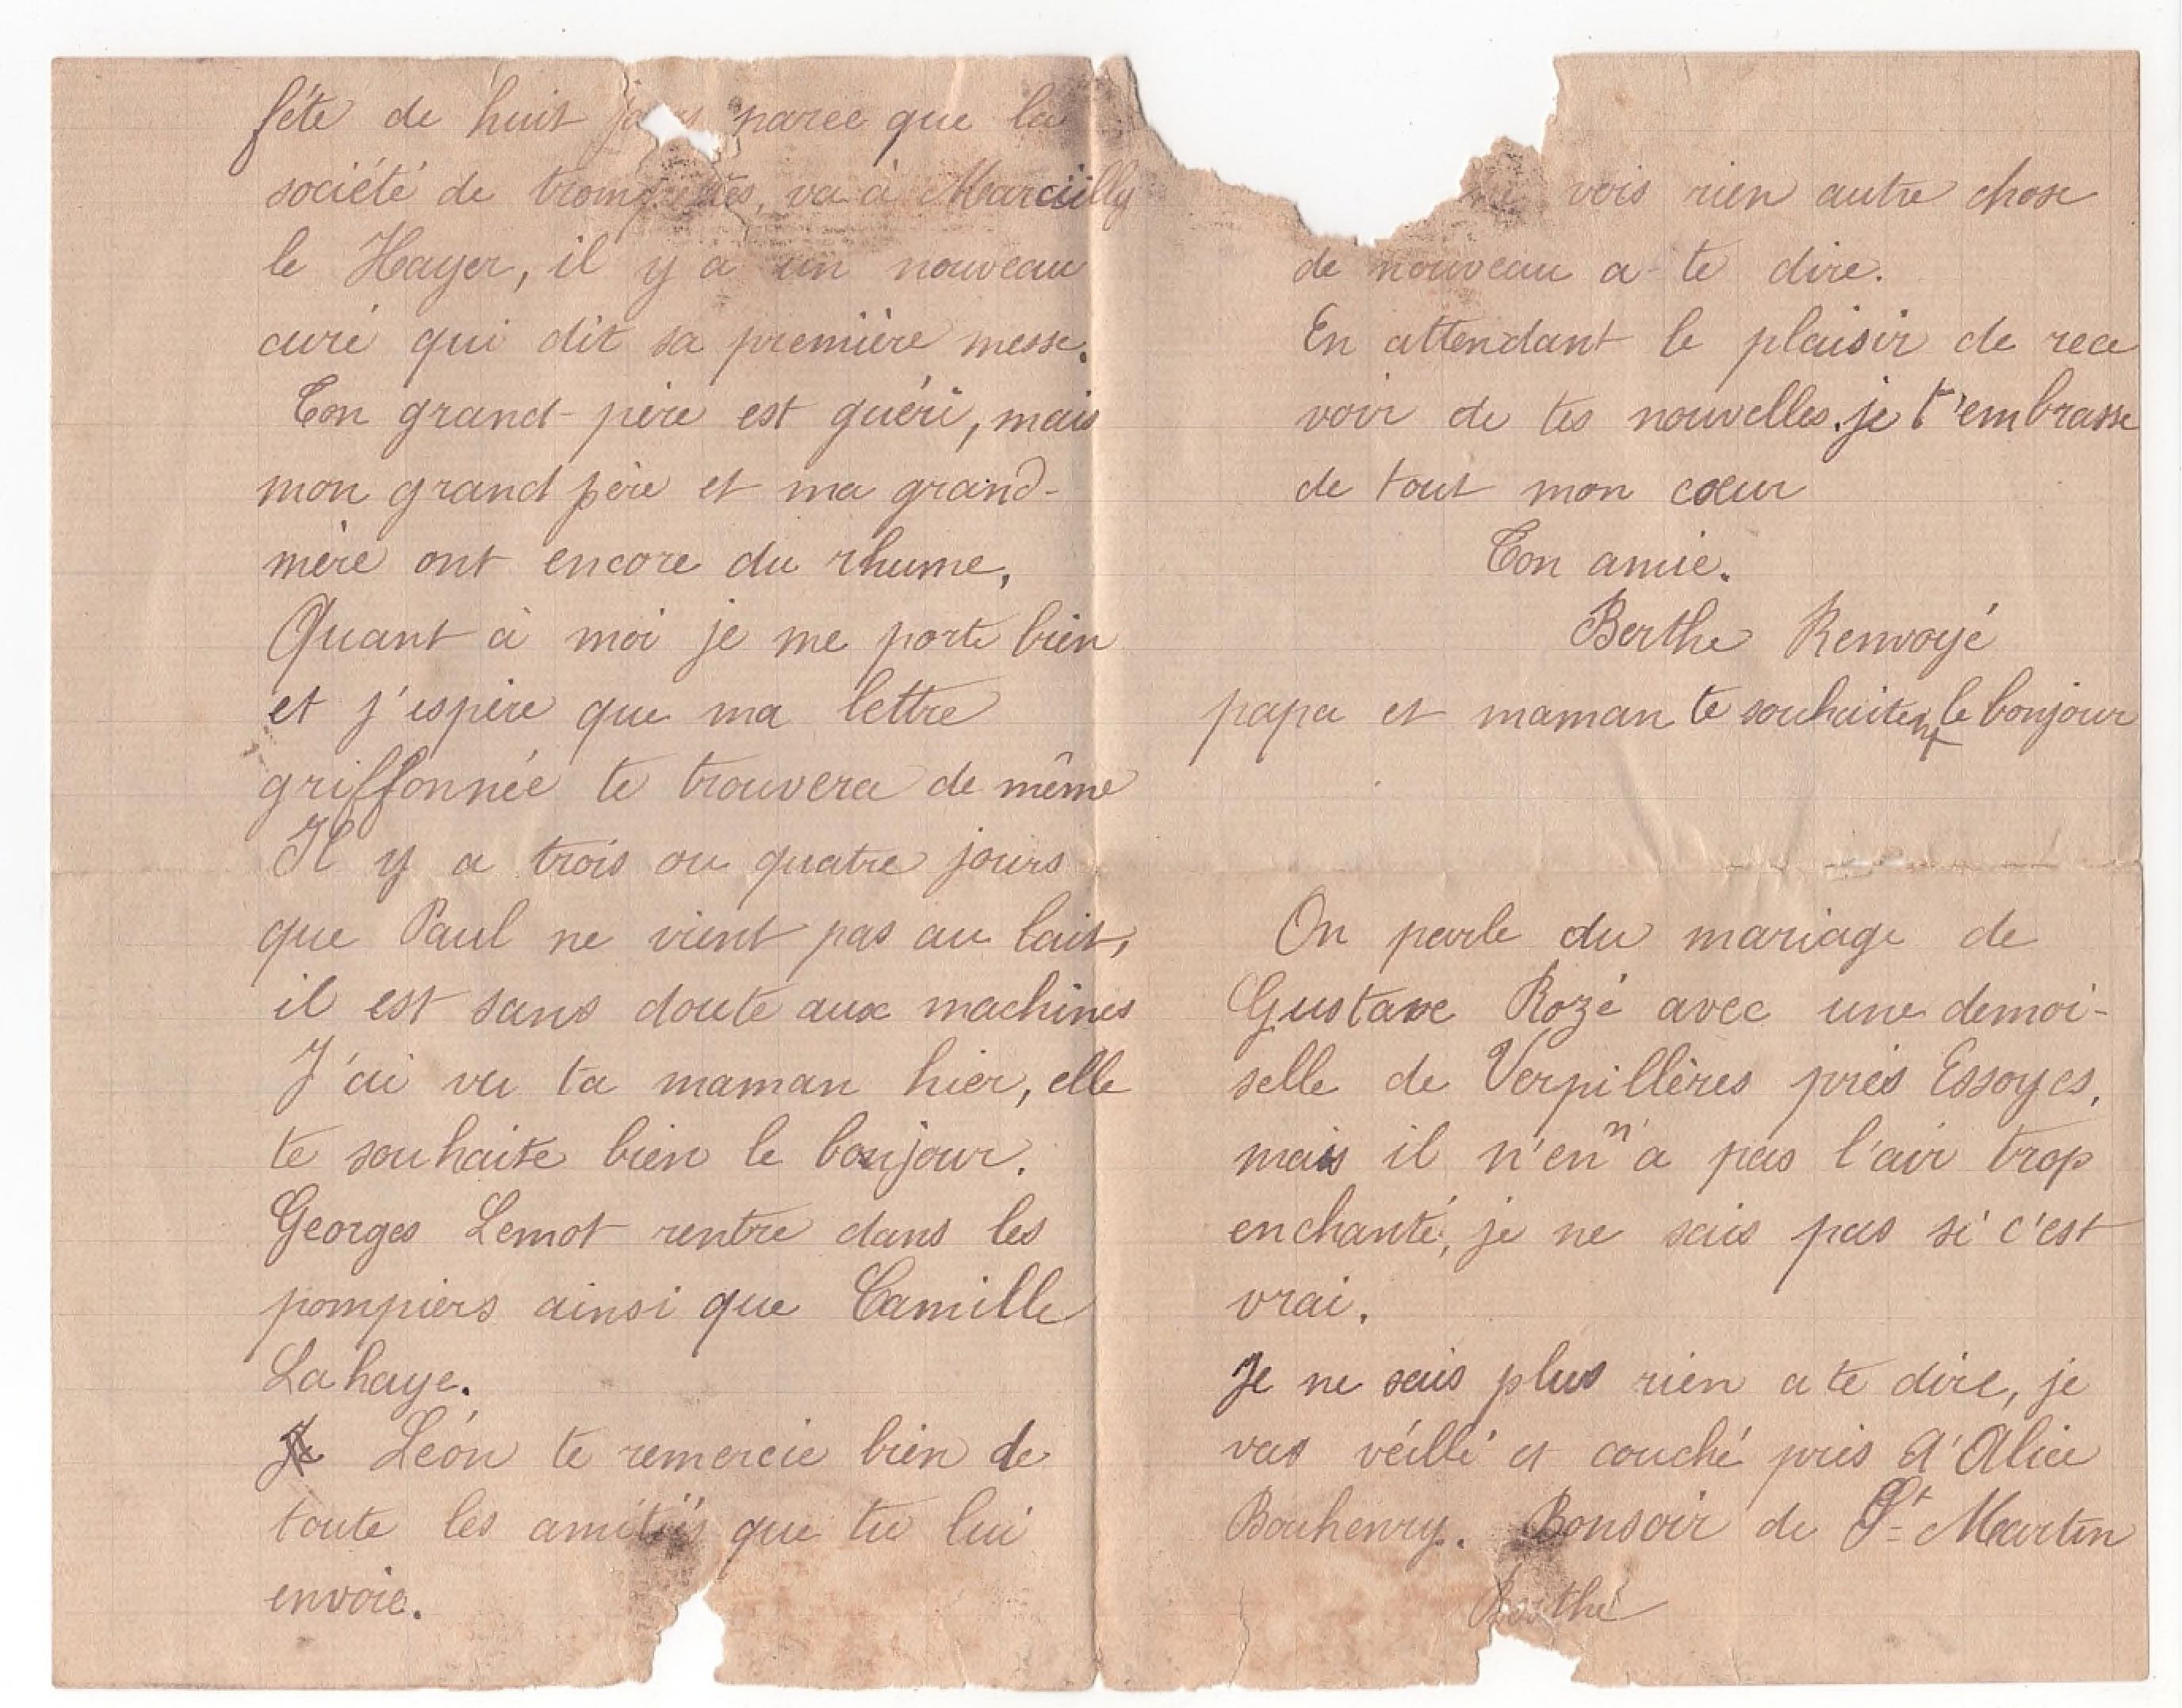 fête de huit jours parce que la
société de trompettes, va à Marcilly
le Hayer, il y a un nouveau
curé qui dit sa première messe.
Ton grand-père est guéri, mais
mon grand père et ma grand-
mère ont encore du rhume,
Quant à moi je me porte bien
et j'espère que ma lettre
griffonnée te trouvera de même
Il y a trois ou quatre jours
que Paul ne vient pas au lait,
il est sans doute aux machines
J'ai vu ta maman hier, elle
te souhaite bien le bonjour.
Georges Lemot rentre dans les
pompiers ainsi que Camille
Lahaye.
Léon te remercie bien de
toute les amitiés que tu lui
envoie.
ne vois rien autre chose
de nouveau a te dire.
En attendant le plaisir de rece
voir de tes nouvelles. je t'embrasse
de tout mon cœur
Ton amie.
Berthe Renvoyé
papa et maman te souhaitent le bonjour
On parle du mariage de
Gustave Rozé avec une demoi-
selle de Verpillères près Essoyes,
mais il n'en n'a pas l'air trop
enchanté, je ne sais pas si c'est
vrai.
Je ne sais plus rien a te dire, je
vas véillé et couché près d'Alice
Bouhenry. Bonsoir de St Martin
Berthe